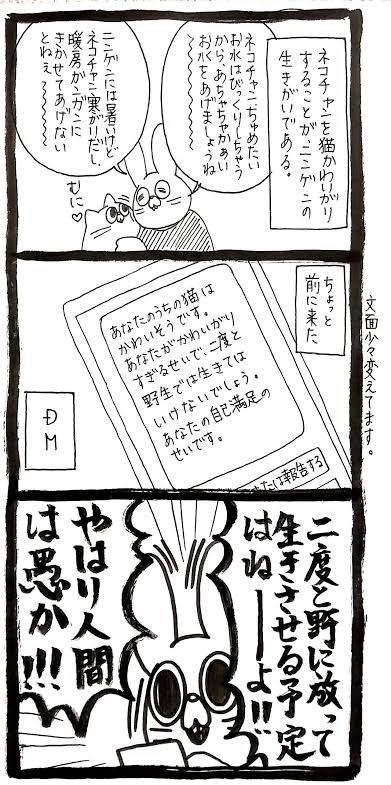 ネコチャンを猫かわいがり
することがニンゲンの
生きがいである。
ネコチャンちゅめたい
お水はびっくりしちゃう
から、あちゃちゃかぁい
お水をあげましょうね
〜
ニンゲンには暑いけど
ネコチャン寒がりだし、
暖房ガンガンに
きかせてあげない
とねぇ〜〜〜〜〜
むに♡
ちょっと
前に来た
文面少々変えてます。
あなたのうちの猫は
かわいそうです。
あなたがかわいがり
すぎるせいで、二度と
野生では生きては
いけないでしょう。
あなたの自己満足の
せいです。
または報告する
DM
二度と野に放って
生きさせる予定
はねーーよ!!
やはり人間
は愚か!!!